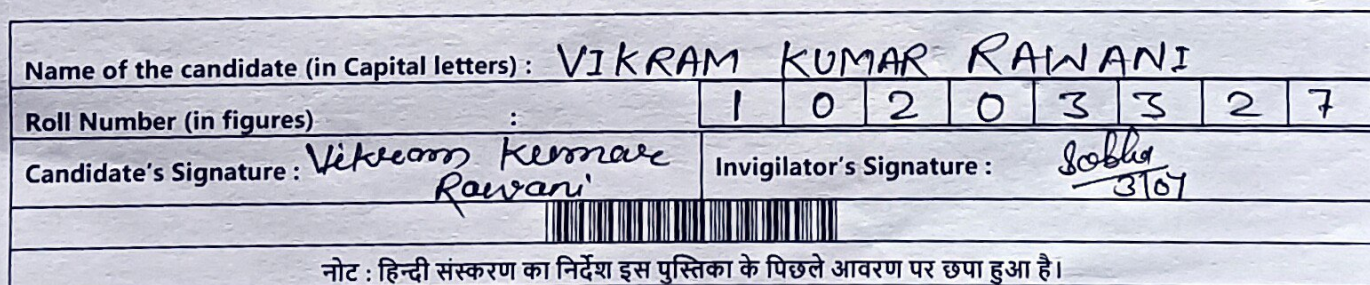 Name of the candidate (in Capital letters) : VIKRAM KUMAR RAWANI
Roll Number (in figures) : 1 0 2 0 3 3 3 2 7
Candidate's Signature : Vikram Kumar Rawani
Invigilator's Signature : Sobha 3/07
नोट : हिन्दी संस्करण का निर्देश इस पुस्तिका के पिछले आवरण पर छपा हुआ है।